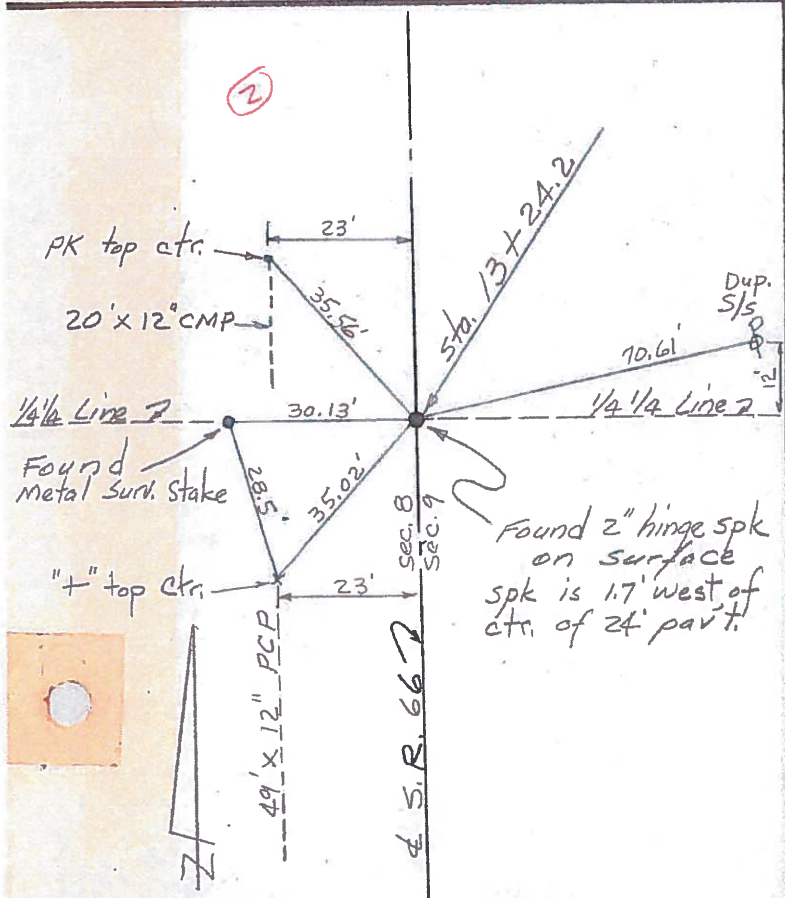 2
23'
PK top ctr.
35.56'
Sta. 13 + 24.2
Dup.
S/S
20' x 12" CMP
70.61'
12'
1/4 1/4 Line
30.13'
1/4 1/4 Line
Found
Metal Surv. Stake
28.5
35.02'
Sec. 8
Sec. 9
Found 2" hinge spk
on surface
spk is 1.7' west of
ctr. of 24' pav't.
"+" top ctr.
23'
49' x 12" PCP
℄ S.R. 66
N